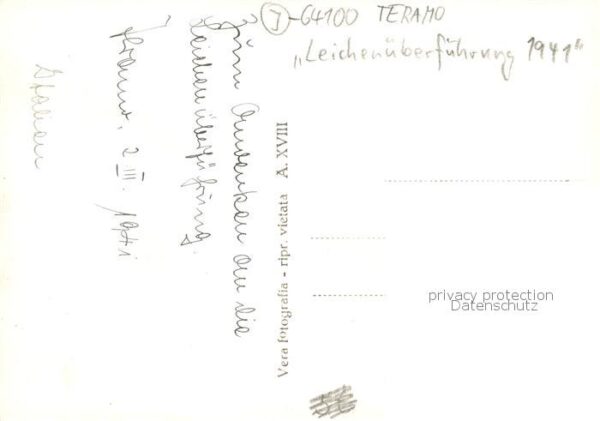 I -64100 TERAMO
„Leichenüberführung 1941"
Zum Andenken an die
Leichenüberführung.
Teramo, 2 III. 1941
Italien
Vera fotografia - ripr. vietata A. XVIII
privacy protection
Datenschutz